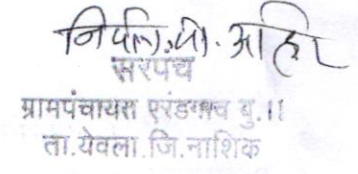 आहिर
सरपंच
ग्रामपंचायत एरंडगाव बु.।।
ता.येवला.जि.नाशिक